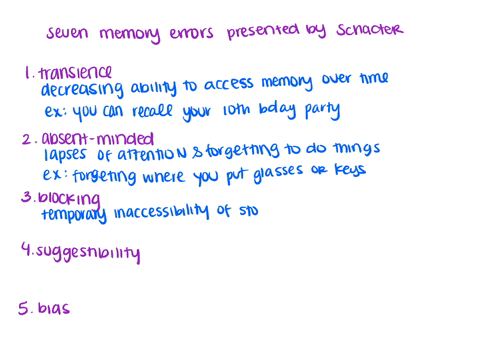 seven memory errors presented by Schacter
1. transience
decreasing ability to access memory over time
ex: you can recall your 10th bday party
2. absent-minded
lapses of attention & forgetting to do things
ex: forgeting where you put glasses or keys
3. blocking
temporary inaccessibility of sto
4. suggestibility
5. bias